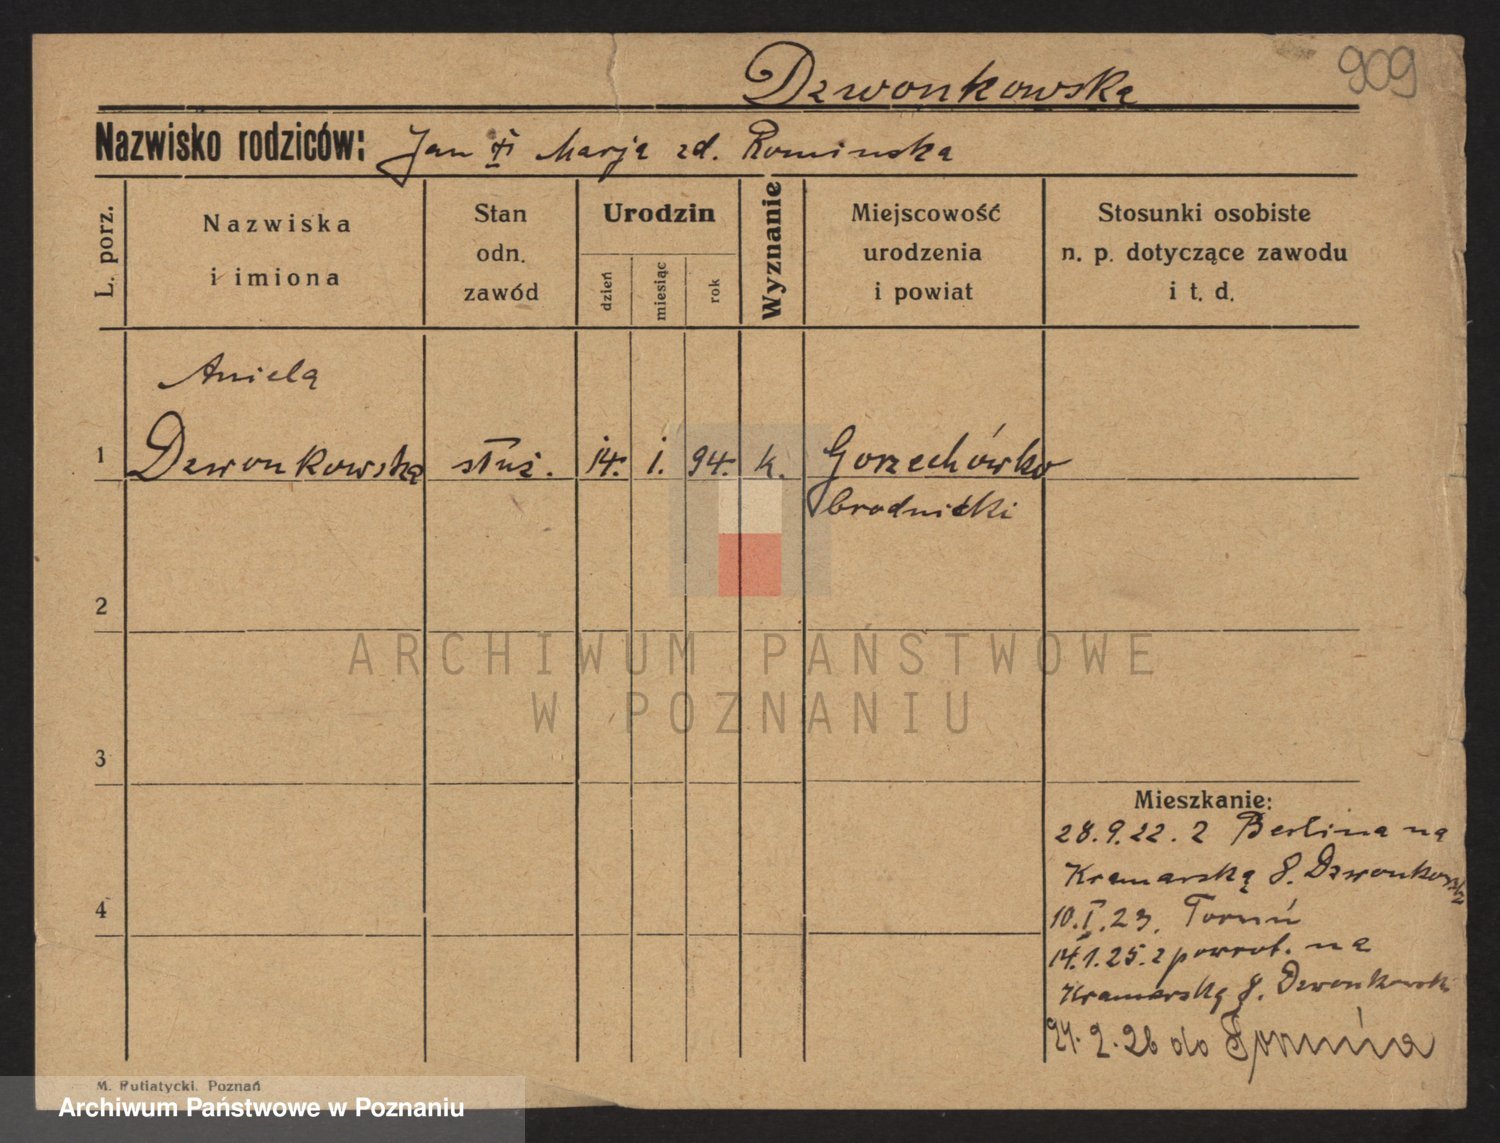 909
Dzwonkowska
Nazwisko rodziców: Jan i Marja zd. Rominska
L. porz.
Nazwiska
i imiona
Stan
odn.
zawód
Urodzin
dzień
miesiąc
rok
Wyznanie
Miejscowość
urodzenia
i powiat
Stosunki osobiste
n. p. dotyczące zawodu
i t. d.
Aniela
1 Dzwonkowska służ. 14. 1. 94. k. Gorzechówko
brodnicki
2
3
4
Mieszkanie:
28.9.22. z Berlina na
Kramarską 8. Dzwonkowski
10.I.23. Toruń
14.1.25. z powrot. na
Kramarską 8. Dzwonkowski
24.2.26 do Torunia
M. Putiatycki, Poznań
ARCHIWUM PAŃSTWOWE
W POZNANIU
Archiwum Państwowe w Poznaniu